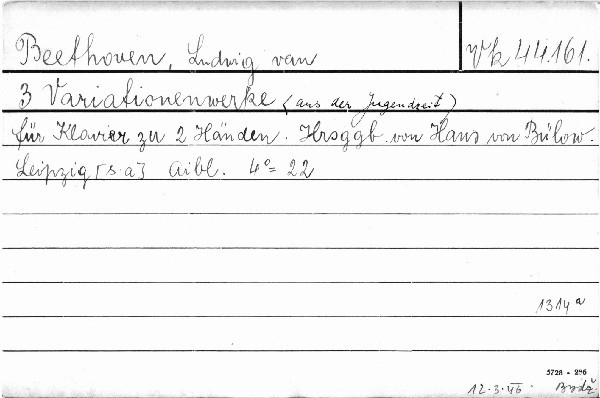 Beethoven, Ludwig van
Vk 44.161.
3 Variationenwerke (aus der Jugendzeit)
für Klavier zu 2 Händen. Hrsggb. von Hans von Bülow.
Leipzig [s.a] Aibl. 4°= 22
1314a
5728 - 296
12.3.46. Brdž.